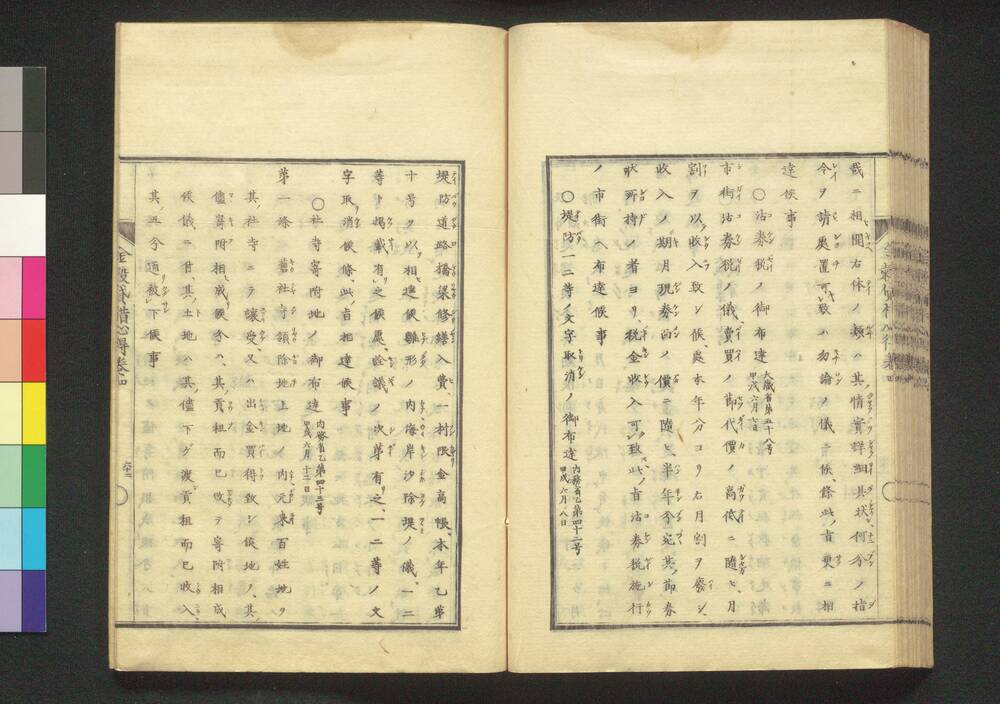 哉ニ相聞右体ノ類ハ其情實詳細具状、何分ノ指
令ヲ請處置可致ハ勿論ノ儀ニ候、條此旨更ニ相
達候事
〇沽券税ノ御布達 大蔵省第五十八号 甲戌六月七日
市街沽券税ノ儀賣買ノ節代價ノ高低ニ隨ヒ、月
割ヲ以収入致シ候處本年分ヨリ右月割ヲ廢シ、
収入ノ期月現券面ノ價ニ隨ヒ半年分宛其節券
状所持ノ者ヨリ税金収入可致此旨沽券税施行
ノ市街ヘ布達候事
〇堤防一二等ノ文字取消ノ御布達 内務省乙第四十二号 甲戌六月八日
堤防道路橋梁修繕入費、一村限金高帳、本年乙第
十号ヲ以相達候雛形ノ内海岸汐除堤ノ儀、一二
等ト掲載有之候處詮議ノ次第有之、一二等ノ文
字取消候條此旨相達候事
〇社寺寄附地ノ御布達 内務省乙第四十三号 甲戌六月十二日
第一條 舊社寺領除地上地ノ内元来百姓地ヲ
其社寺ニテ讓受又ハ出金買得致シ候地ノ、其
儘寄附相成候分ハ、其貢租而已収テ寄附相成
候儀ニ付其土地ハ其儘下ゲ渡貢租而已収入、
其五分通被下候事
六十二